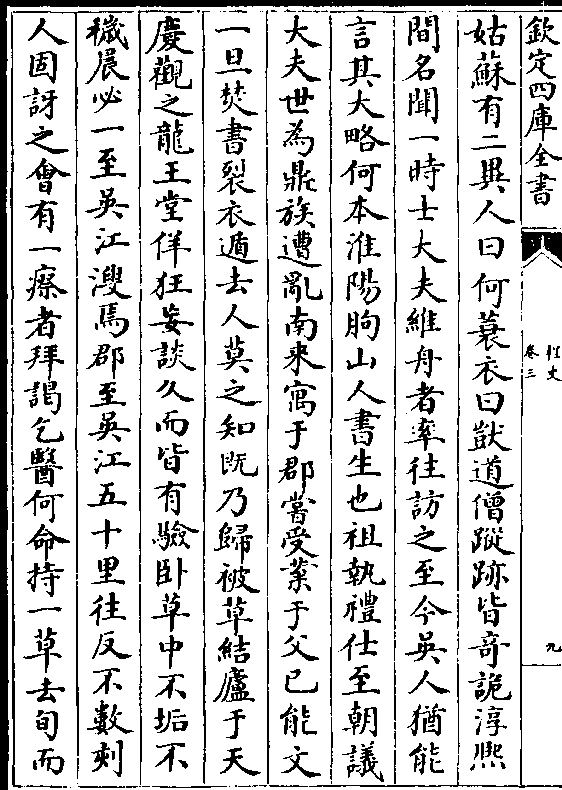 欽定四庫全書
桯史
卷三
九
姑蘇有二異人曰何蓑衣曰獃道僧蹤跡皆奇詭淳熙
間名聞一時士大夫維舟者率往訪之至今吳人猶能
言其大略何本淮陽朐山人書生也祖執禮仕至朝議
大夫世為鼎族遭亂南來寓于郡嘗受業于父已能文
一旦焚書裂衣遁去人莫之知既乃歸被草結廬于天
慶觀之龍王堂佯狂妄談久而皆有驗卧草中不垢不
穢晨必一至吳江溲焉郡至吳江五十里往反不數刻
人固訝之會有一瘵者拜謁乞醫何命持一草去旬而